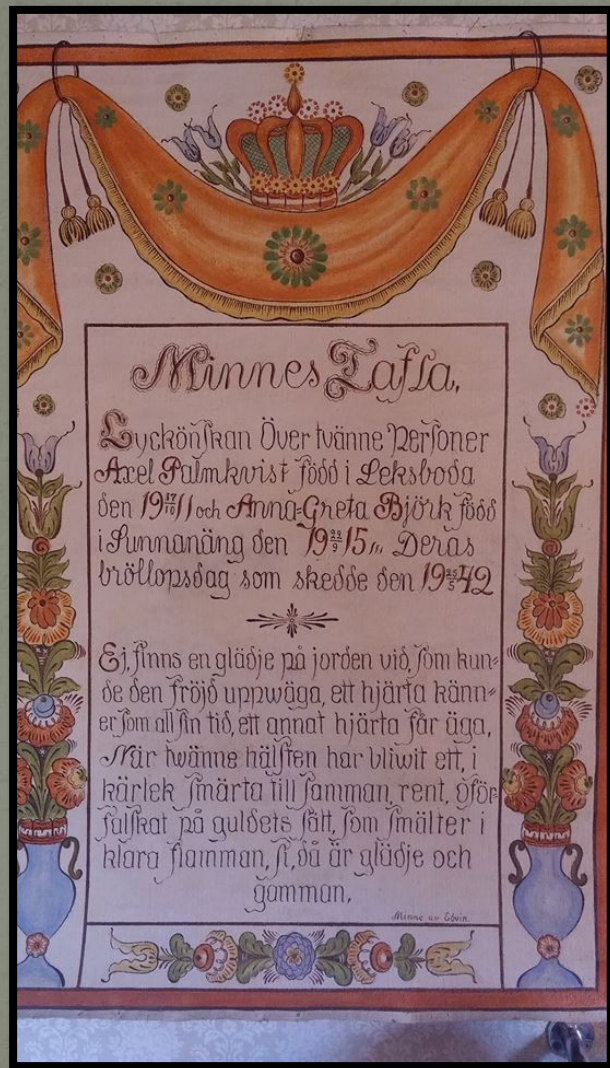 Minnes Tafla.
Lyckönskan Över tvänne Personer
Axel Palmkvist född i Leksboda
den 19 17/10 11 och Anna-Greta Björk född
i Sunnanäng den 19 22/9 15,,, Deras
bröllopsdag som skedde den 19 25/5 42
Ej, finns en glädje på jorden vid, som kun-
de den fröjd uppwäga, ett hjärta känn-
er som all sin tid, ett annat hjärta får äga,
När twänne hälften har bliwit ett, i
kärlek smärta till samman, rent, oför-
falskat på guldets sätt, som smälter i
klara flamman, si, då är glädje och
gamman.
Minne av Edvin.